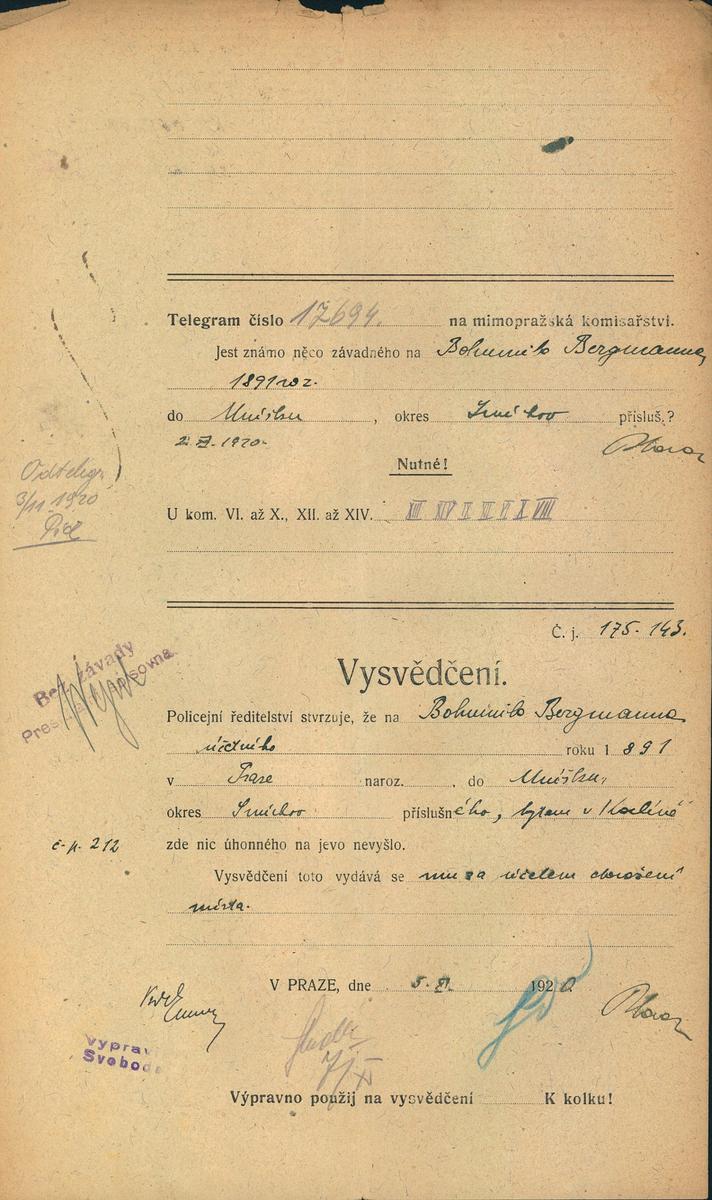 Telegram číslo 17694. na mimopražská komisařství.
Jest známo něco závadného na Bohumila Bergmanna
1891 roz.
do Mníšku, okres Smíchov přísluš.?
2. XI. 1920.
Nutné!
Odtelegr.
3/11 1920
U kom. VI. až X., XII. až XIV. XIII XIV
Č. j. 175-143.
Bez závady
Vysvědčení.
Policejní ředitelství stvrzuje, že na Bohumila Bergmanna
účetního roku 1891
v Praze naroz., do Mníšku,
okres Smíchov příslušného, bytem v Karlíně
č.p. 212 zde nic úhonného na jevo nevyšlo.
Vysvědčení toto vydává se mu za účelem dosažení
místa.
V PRAZE, dne 5. XI. 1920.
vypravi
Svoboda
Výpravno použij na vysvědčení K kolku!